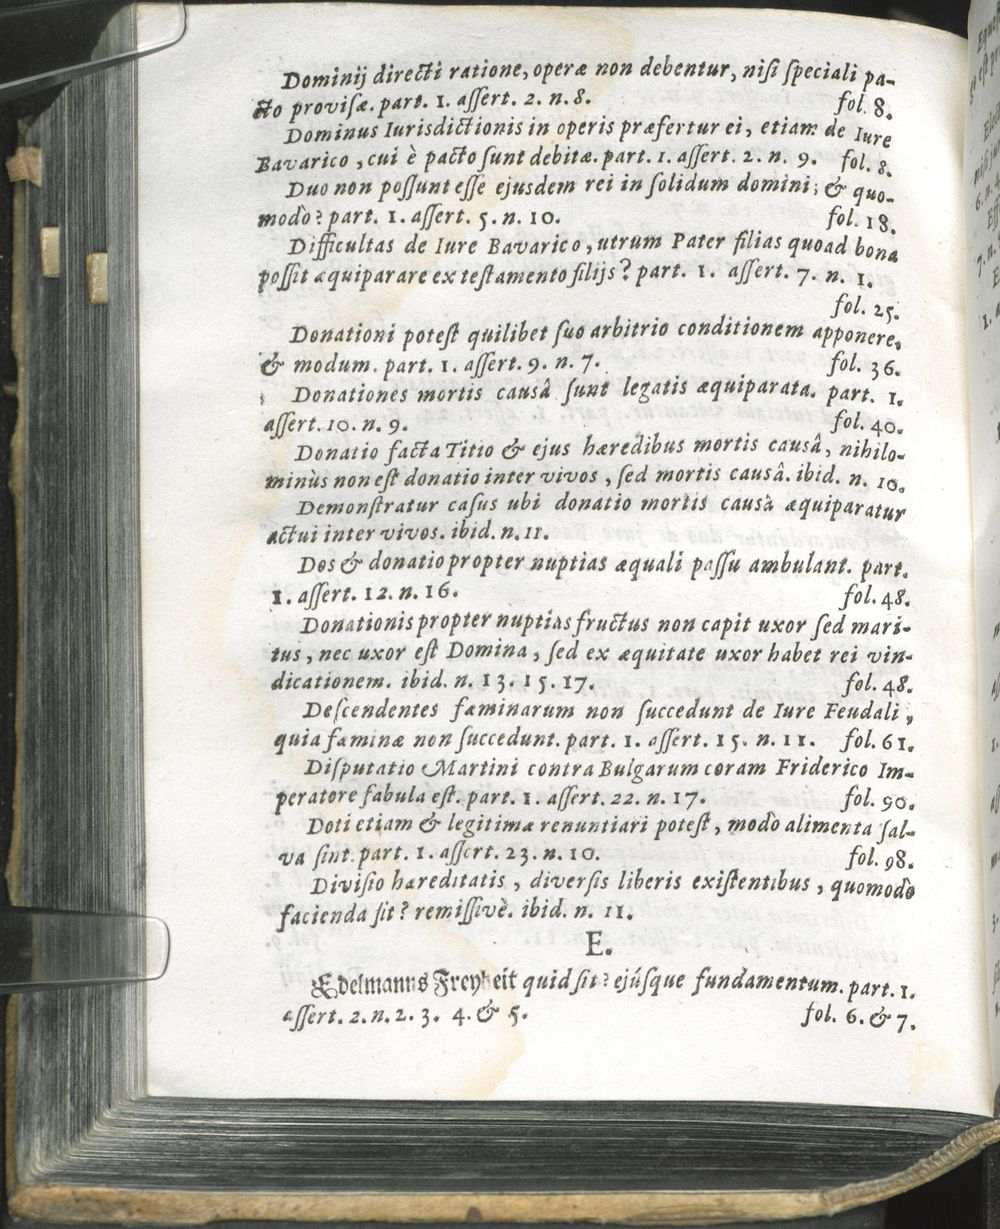 Dominij directi ratione, operæ non debentur, nisi speciali pa-
cto provisæ. part. 1. assert. 2. n. 8. fol. 8.
Dominus Iurisdictionis in operis præfertur ei, etiam de Iure
Bavarico, cui è pacto sunt debitæ. part. 1. assert. 2. n. 9. fol. 8.
Duo non possunt esse ejusdem rei in solidum domini; & quo-
modò? part. 1. assert. 5. n. 10. fol. 18.
Difficultas de Iure Bavarico, utrum Pater filias quoad bona
possit æquiparare ex testamento filijs? part. 1. assert. 7. n. 1.
fol. 25.
Donationi potest quilibet suo arbitrio conditionem apponere,
& modum. part. 1. assert. 9. n. 7. fol. 36.
Donationes mortis causâ sunt legatis æquiparata. part. 1.
assert. 10. n. 9. fol. 40.
Donatio facta Titio & ejus hæredibus mortis causâ, nihilo-
minùs non est donatio inter vivos, sed mortis causâ. ibid. n. 10.
Demonstratur casus ubi donatio mortis causâ æquiparatur
actui inter vivos. ibid. n. 11.
Dos & donatio propter nuptias æquali passu ambulant. part.
1. assert. 12. n. 16. fol. 48.
Donationis propter nuptias fructus non capit uxor sed mari-
tus, nec uxor est Domina, sed ex æquitate uxor habet rei vin-
dicationem. ibid. n. 13. 15. 17. fol. 48.
Descendentes fæminarum non succedunt de Iure Feudali,
quia fæminæ non succedunt. part. 1. assert. 15. n. 11. fol. 61.
Disputatio Martini contra Bulgarum coram Friderico Im-
peratore fabula est. part. 1. assert. 22. n. 17. fol. 90.
Doti etiam & legitimæ renuntiari potest, modò alimenta sal-
va sint. part. 1. assert. 23. n. 10. fol. 98.
Divisio hæreditatis, diversis liberis existentibus, quomodò
facienda sit? remissivè. ibid. n. 11.
E.
Edelmanns Freyheit quid sit? ejúsque fundamentum. part. 1.
assert. 2. n. 2. 3. 4. & 5. fol. 6. & 7.